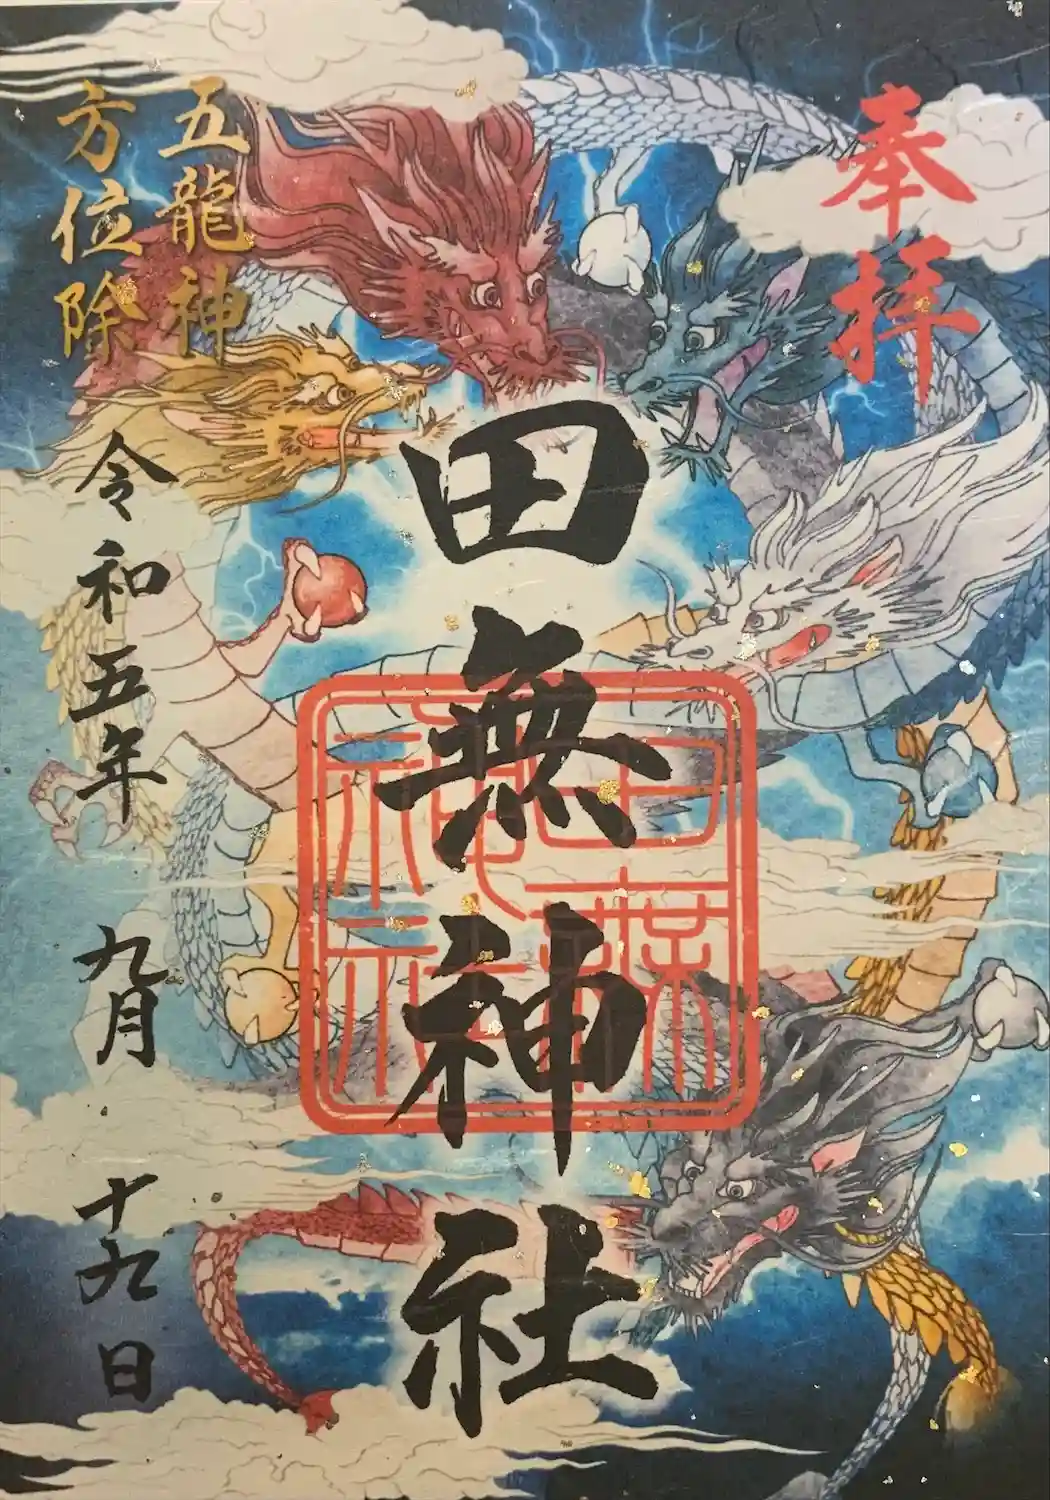 奉拝
田無神社
五龍神
方位除
令和五年九月十九日
田無神社